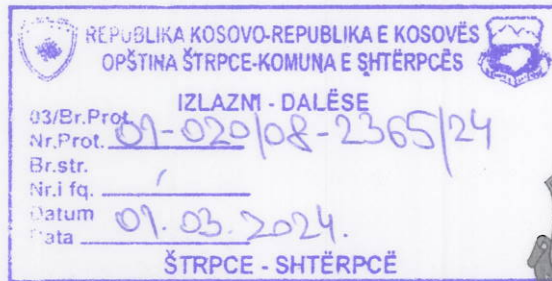 REPUBLIKA KOSOVO-REPUBLIKA E KOSOVËS
OPŠTINA ŠTRPCE-KOMUNA E SHTËRPCËS
IZLAZNI - DALËSE
03/Br.Prot.
Nr.Prot. 01-020/08-2365/24
Br.str.
Nr.i fq. /
Datum
Data 01.03.2024.
ŠTRPCE - SHTËRPCË